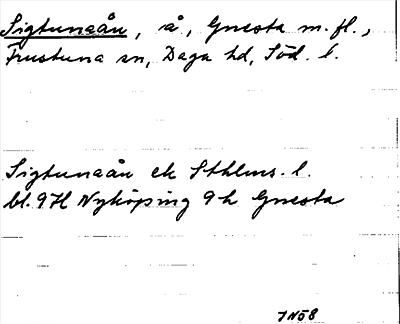 Sigtunaån, å, Gnesta m.fl.,
Frustuna sn, Daga hd, Söd. l.
Sigtunaån ek Sthlms. l.
bl. 9H Nyköping 9h Gnesta
7NÖ8